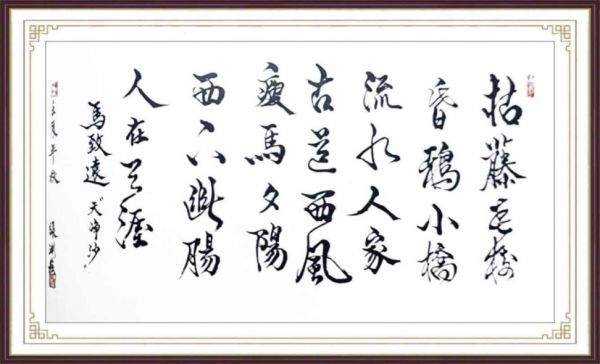 枯藤老樹
昏鴉小橋
流水人家
古道西風
瘦馬夕陽
西下斷腸
人在天涯
馬致遠 天净沙
年秋